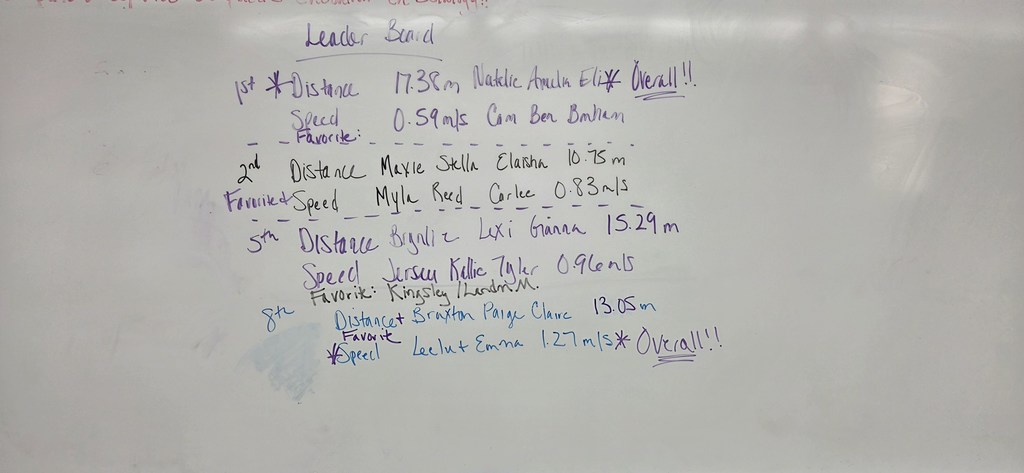 Leader Board
1st * Distance 17.38m Natalie Amelia Eli * Overall!!
Speed 0.59m/s Cam Ben
Favorite:
2nd Distance Maxie Stella Elaisha 10.75 m
Favorite + Speed Myla Reed Carlee 0.83m/s
5th Distance Brynlie Lexi Gianna 15.29 m
Speed Jersey Kellie Tyler 0.96m/s
Favorite: Kingsley / Landn M.
8th Distance + Braxton Paige Claire 13.05 m
Favorite
* Speed Leelu + Emma 1.27 m/s * Overall!!